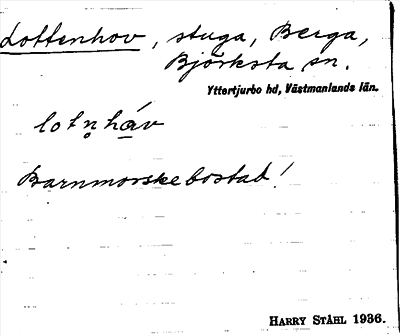 Lottenhov, stuga, Berga,
Björksta sn.
Yttertjurbo hd, Västmanlands län.
lotn̥há̲v
Barnmorskebostad!
HARRY STÅHL 1936.